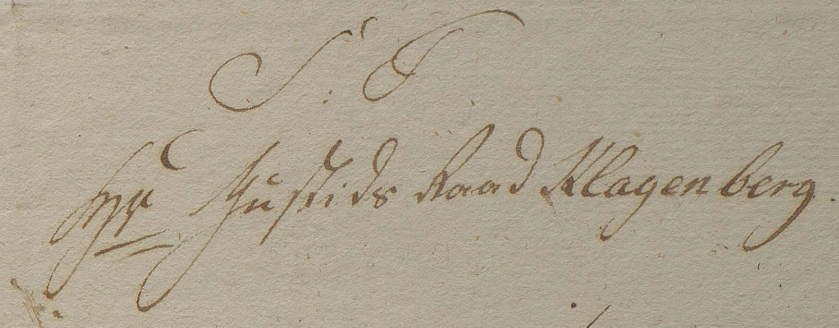 S. T.
Hr Justids Raad Klagenberg.